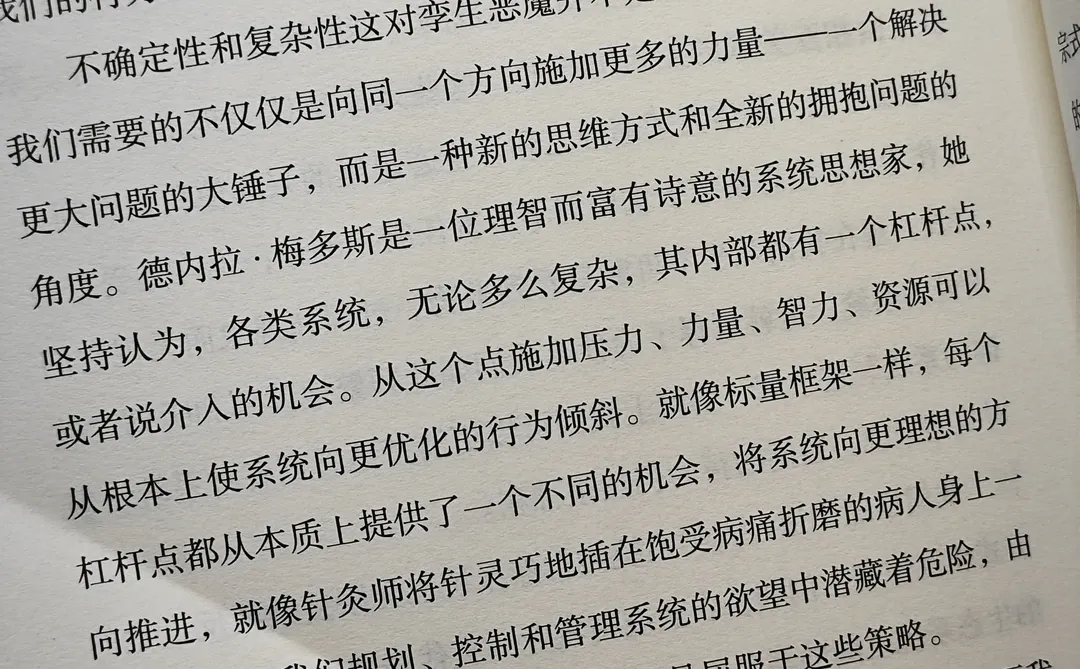 们的行
不确定性和复杂性这对孪生恶魔并不是
我们需要的不仅仅是向同一个方向施加更多的力量——一个解决
更大问题的大锤子，而是一种新的思维方式和全新的拥抱问题的
角度。德内拉·梅多斯是一位理智而富有诗意的系统思想家，她
坚持认为，各类系统，无论多么复杂，其内部都有一个杠杆点，
或者说介入的机会。从这个点施加压力、力量、智力、资源可以
从根本上使系统向更优化的行为倾斜。就像标量框架一样，每个
杠杆点都从本质上提供了一个不同的机会，将系统向更理想的方
向推进，就像针灸师将针灵巧地插在饱受病痛折磨的病人身上一
我们规划、控制和管理系统的欲望中潜藏着危险，由
屈服于这些策略。